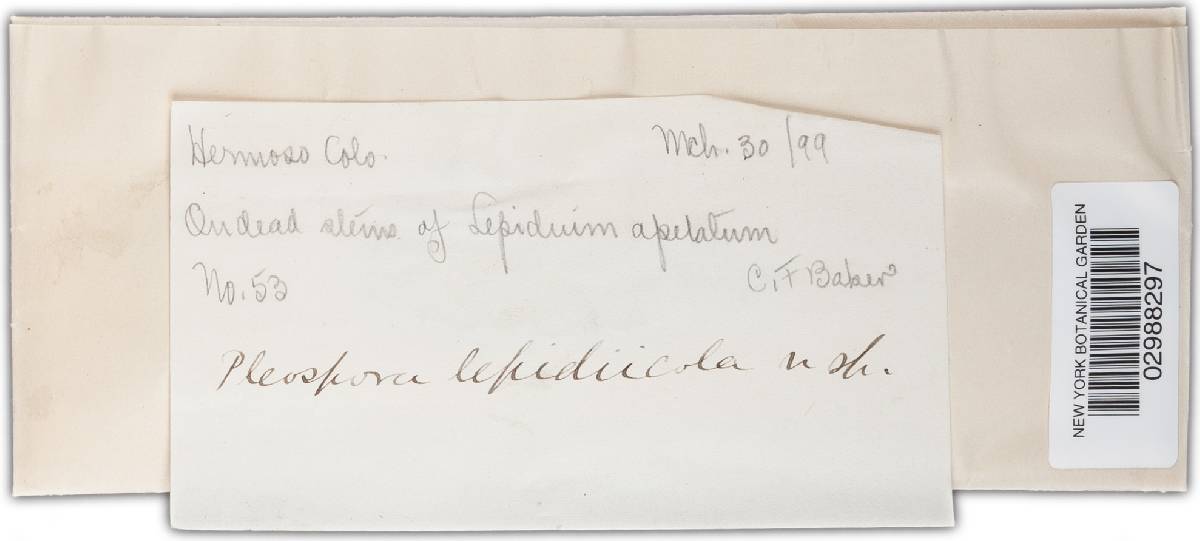 Hermoso Colo. Mch. 30/99
On dead stems of Lepidium apetalum
No. 53 C. F Baker
Pleospora lepidiicola n sp.
NEW YORK BOTANICAL GARDEN
02988297